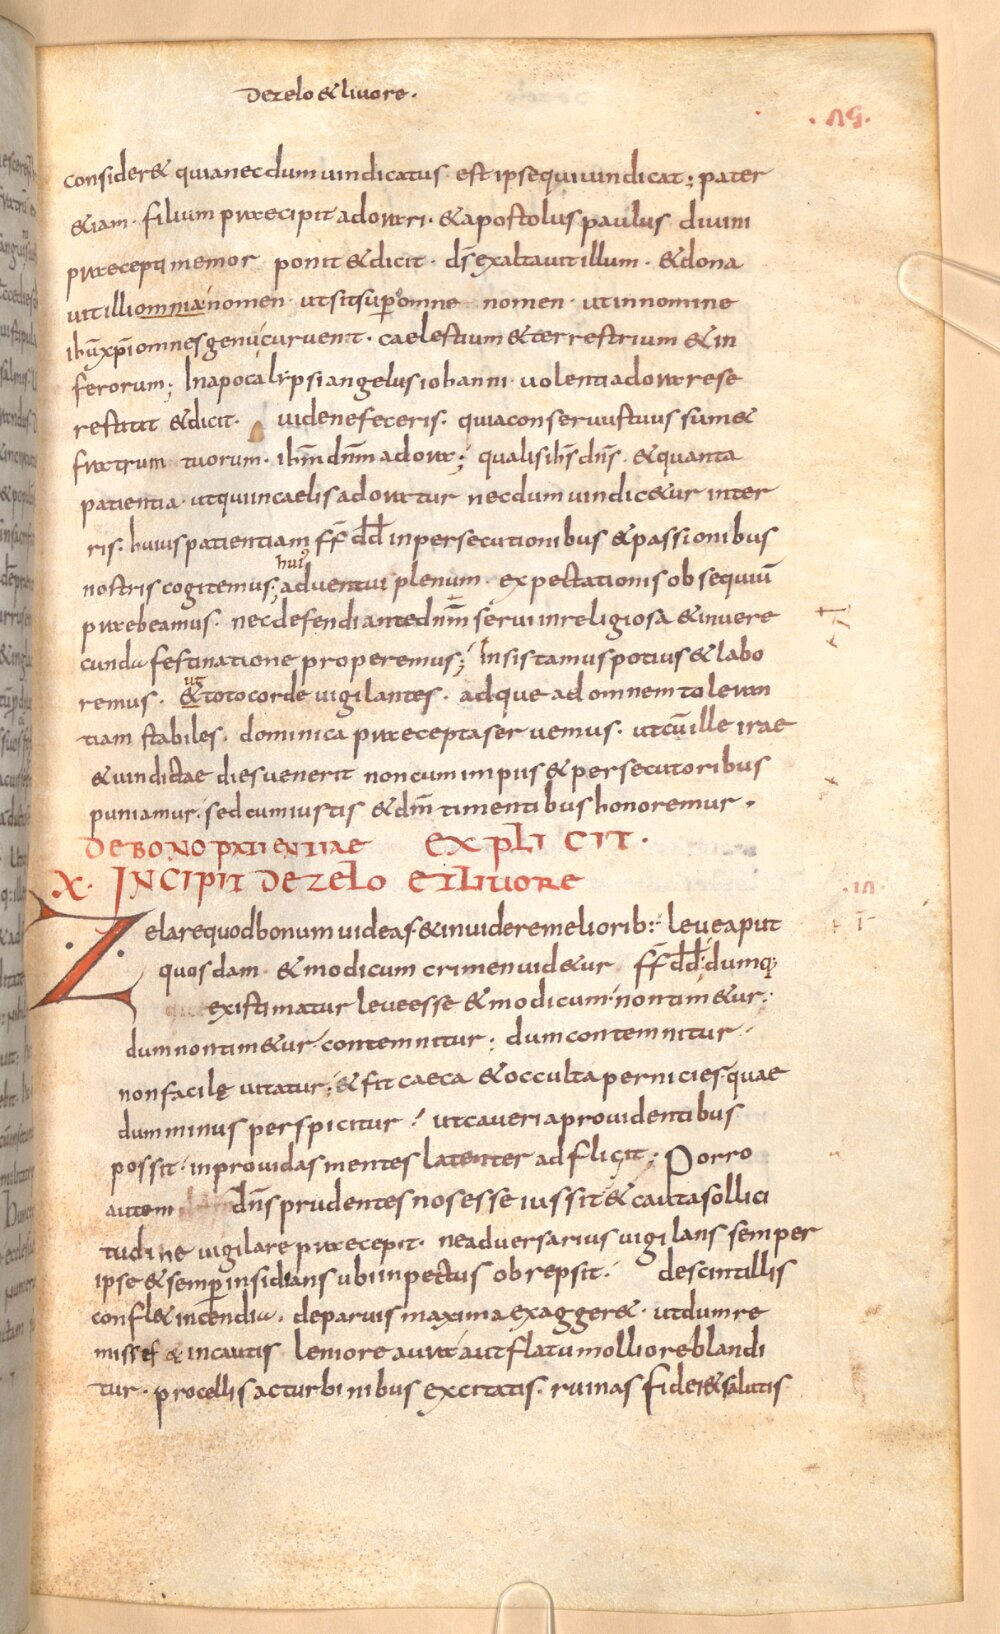 De zelo & livore.
consider& quia necdum vindicatus est ipse qui vindicat; pater
& iam. filium praecipit adorari. & apostolus paulus divini
praecepti memor ponit & dicit. dš exaltavit illum. & dona
vit illi omnia nomen. ut sit sup omne nomen. ut in nomine
ihū xpī omnes genu curvent. caelestium & terrestrium & in
ferorum; In apocalypsi angelus iohanni volenti adorare se
restitit & dicit. vide ne feceris. quia conservus tuus sum &
fratrum tuorum. ihm̄ dnm̄ adora; qualis ihs̄ dns̄. & quanta
patientia. ut qui in caelis adoratur necdum vindic&ur in ter
ris. huius patientiam ff̄ dd̄ in persecutionibus & passionibus
nostris cogitemus; adventui plenum. expectationis obsequiū
hui᾽
praebeamus. nec defendi ante dnm̄ servi inreligiosa & invere
cunda festinatione properemus; Insistamus potius & labo
remus. & toto corde vigilantes. adque ad omnem toleran
ut
tiam stabiles. dominica praecepta servemus. ut cū ille irae
& vindictae dies venerit non cum impiis & persecutoribus
puniamur. sed cum iustis & dm̄ timentibus honoremur.
DE BONO PATIENTIAE EXPLICIT.
X. INCIPIT DE ZELO ET LIVORE
Zelare quod bonum videas. & invidere meliorib: leve aput
quosdam & modicum crimen vid&ur ff̄ dd̄. dumq;
existimatur leve esse & modicum. non tim&ur.
dum non tim&ur. contemnitur; dum contemnitur
non facilę vitatur; & fit caeca & occulta pernicies. quae
dum minus perspicitur ut caveri a providentibus
possit. inprovidas mentes latenter adfligit; Porro
autem dns̄ prudentes nos esse iussit & cauta sollici
tudine vigilare praecepit. ne adversarius vigilans semper
ipse & semp insidians ubi in pectus obrepsit. de scintillis
confl& incendia. de parvis maxima exagger&. ut dum re
missis & incautis leniore aura aut flatu molliore blandi
tur. procellis ac turbinibus excitatis. ruinas fidei & salutis